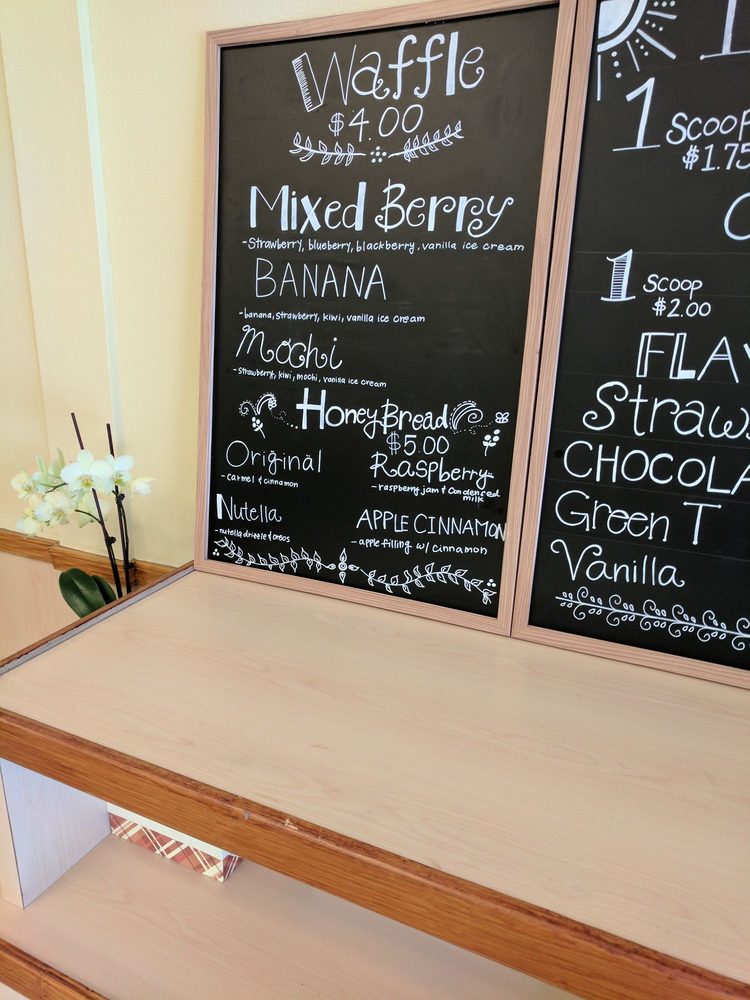 Waffle
$4.00
Mixed Berry
-Strawberry, blueberry, blackberry, vanilla ice cream
BANANA
-banana, strawberry, kiwi, vanilla ice cream
Mochi
-Strawberry, kiwi, mochi, vanilla ice cream
Honey Bread
$5.00
Original
-carmel & cinnamon
Raspberry
-raspberry jam & condensed
milk
Nutella
-nutella drizzle & oreos
APPLE CINNAMON
-apple filling w/ cinnamon
1 Scoop
$1.75
1 Scoop
$2.00
FLAV
Straw
CHOCOLA
Green T
Vanilla